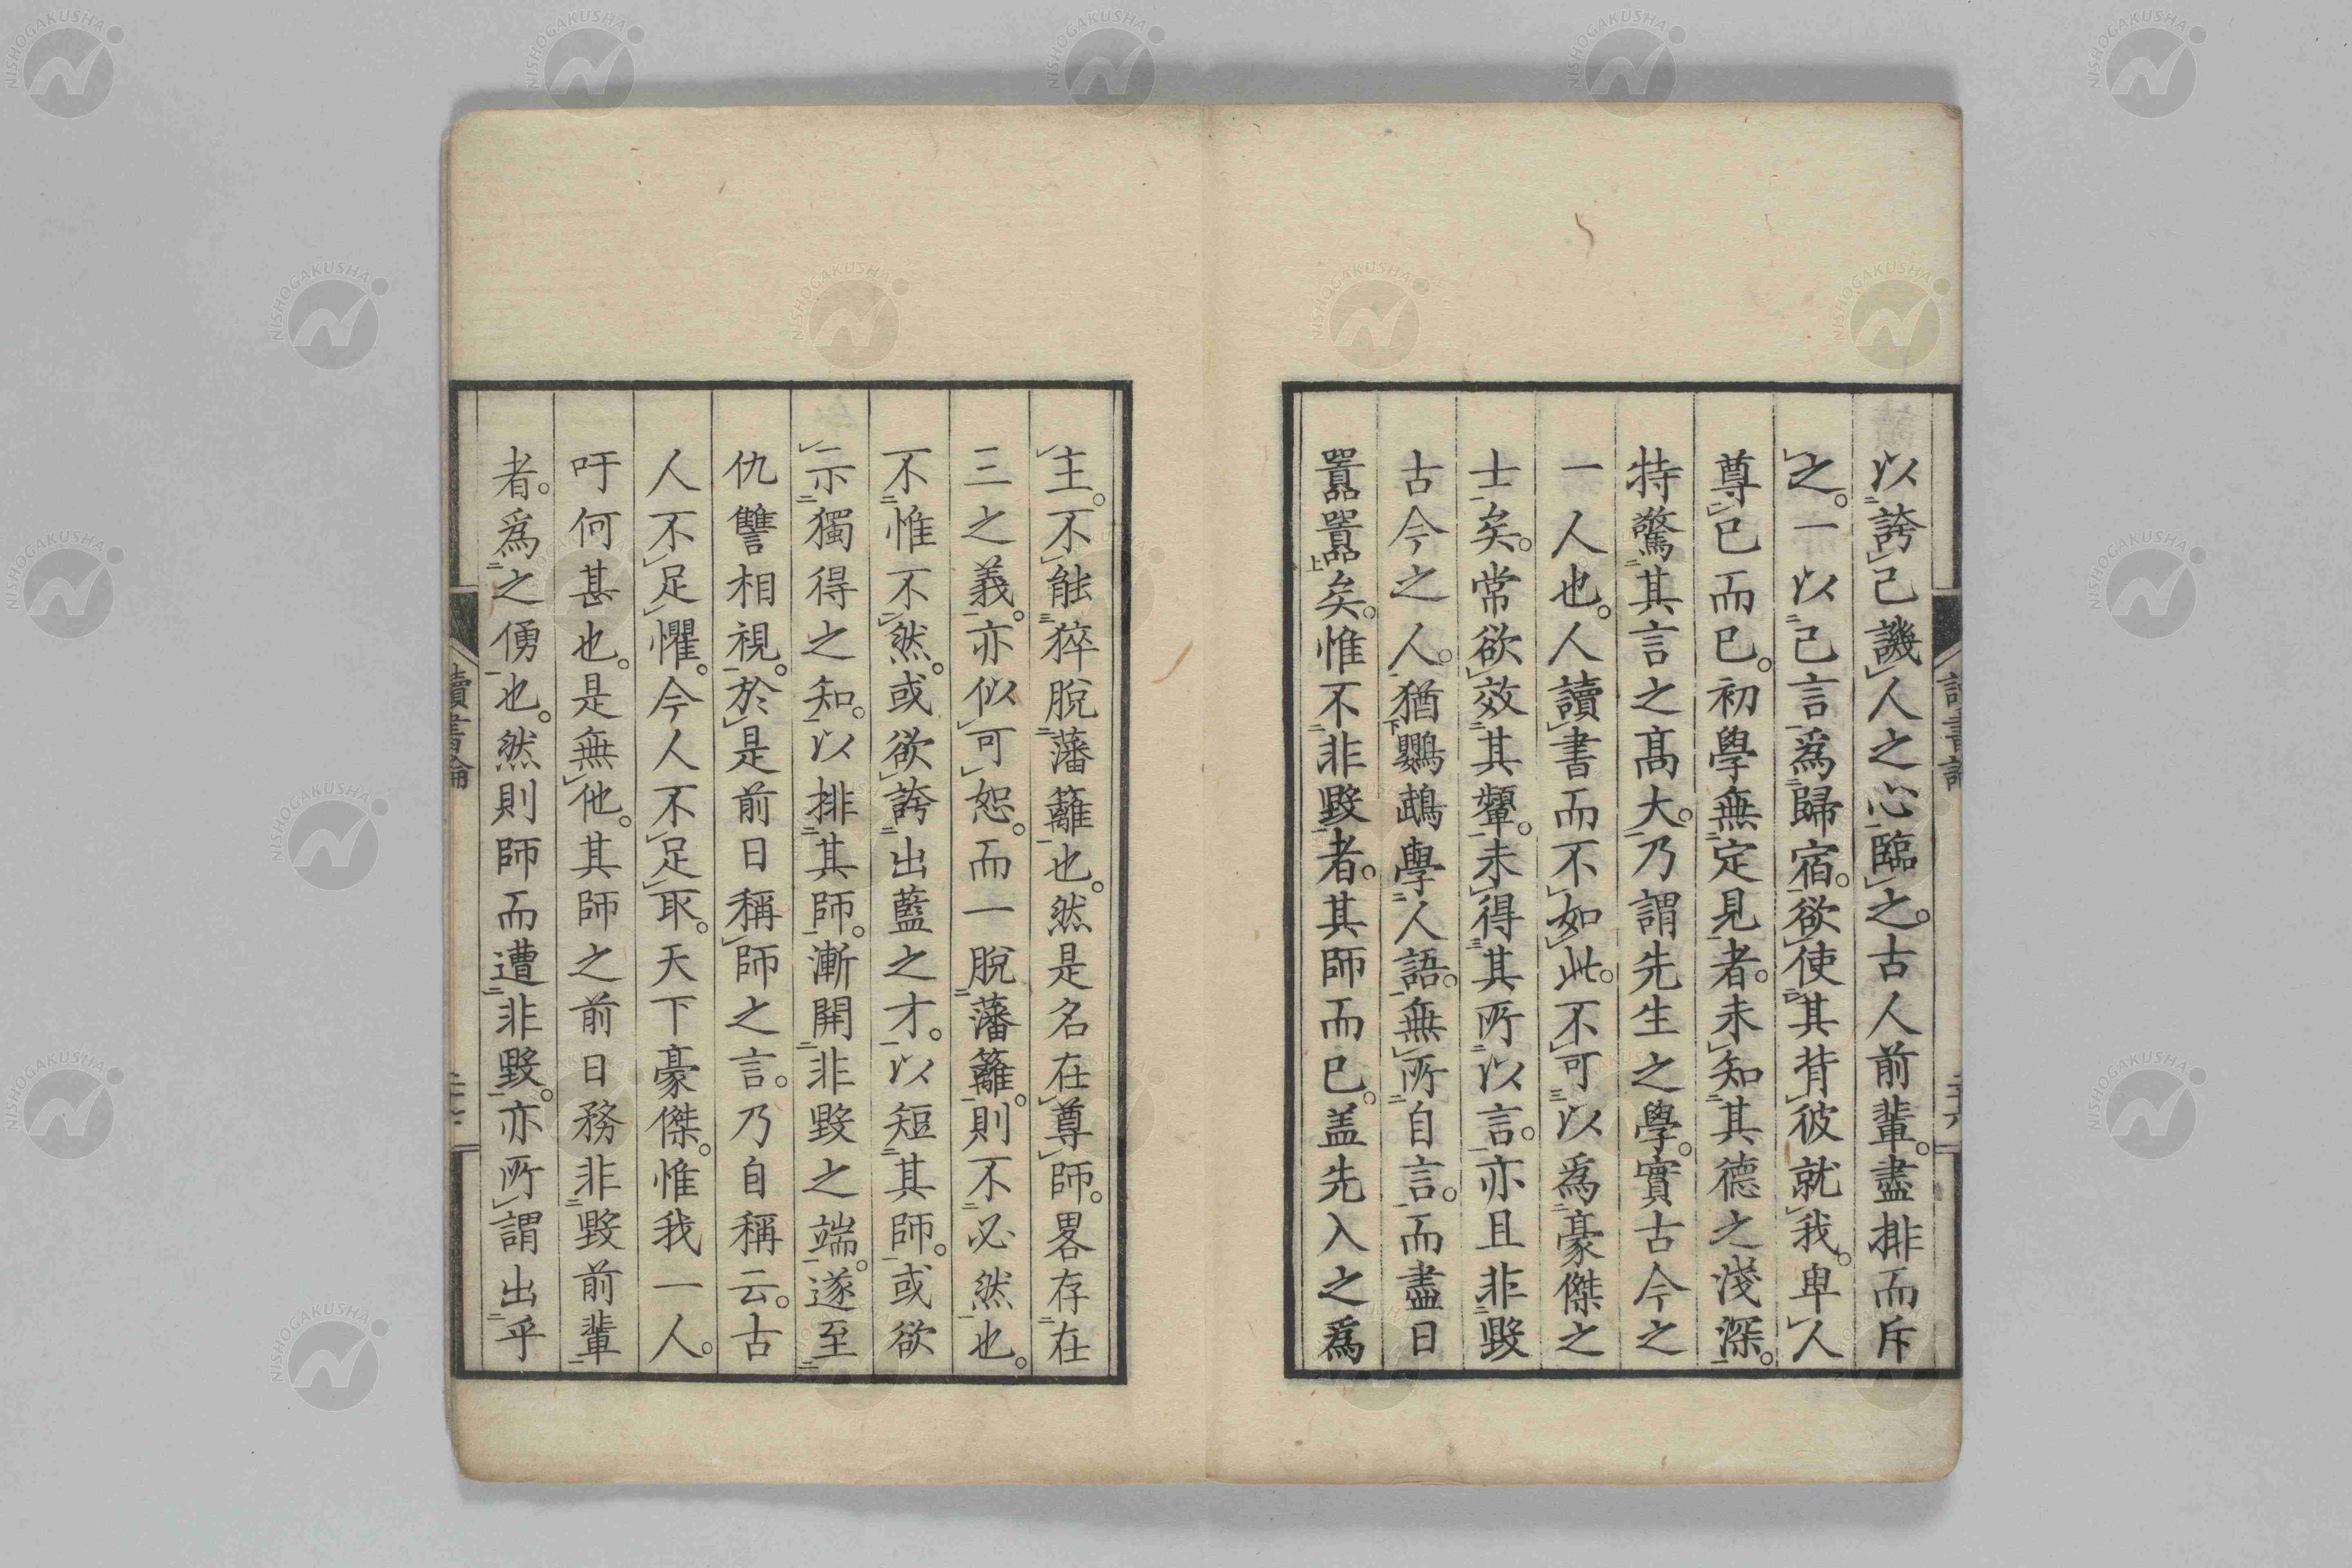 以誇己譏人之心臨之。古人前輩。盡排而斥
之。一以己言爲歸宿。欲使其背彼就我。卑人
尊己而已。初學無定見者。未知其德之淺深。
特驚其言之髙大。乃謂先生之學。實古今之
一人也。人讀書而不如此。不可以爲豪傑之
士矣。常欲效其顰。未得其所以言。亦且非毀
古今之人。猶鸚鵡學人語。無所自言。而盡日
嚚嚚矣。惟不非毀者。其師而已。盖先入之爲
主。不能猝脫藩籬也。然是名在尊師。畧存在
三之義。亦似可恕。而一脫藩籬。則不必然也。
不惟不然。或欲誇出藍之才。以短其師。或欲
示獨得之知。以排其師。漸開非毀之端。遂至
仇讐相視。於是前日稱師之言。乃自稱云。古
人不足懼。今人不足取。天下豪傑。惟我一人。
吁何甚也。是無他。其師之前日務非毀前輩
者。爲之俑也。然則師而遭非毀。亦所謂出乎
讀書論
NISHOGAKUSHA